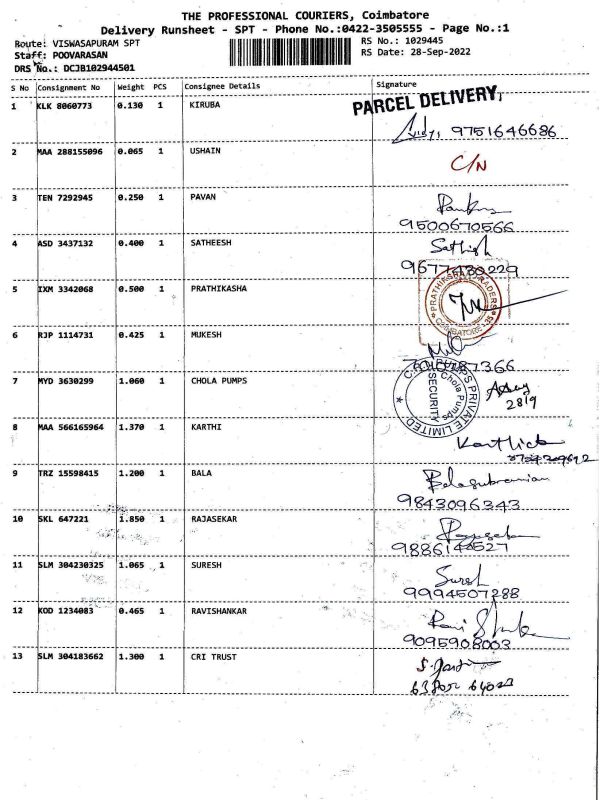 THE PROFESSIONAL COURIERS, Coimbatore
Delivery Runsheet - SPT - Phone No.:0422-3505555 - Page No.:1
Route: VISWASAPURAM SPT
RS No.: 1029445
Staff: POOVARASAN
RS Date: 28-Sep-2022
DRS No.: DCJB102944501
S No Consignment No Weight PCS Consignee Details Signature
PARCEL DELIVERY,
1 KLK 8060773 0.130 1 KIRUBA
9751646686
2 MAA 288155096 0.065 1 USHAIN
C/N
3 TEN 7292945 0.250 1 PAVAN
9500670566
4 ASD 3437132 0.400 1 SATHEESH
Sathish
5 IXM 3342068 0.500 1 PRATHIKASHA
TRADERS
COIMBATORE - 35
6 RJP 1114731 0.425 1 MUKESH
7 MYD 3630299 1.060 1 CHOLA PUMPS
PUMPS PRIVATE LIMITED
Chola Pumps
SECURITY
28/9
8 MAA 566165964 1.370 1 KARTHI
Karthick
9 TRZ 15598415 1.200 1 BALA
Balasubramian
9843096343
10 SKL 647221 1.850 1 RAJASEKAR
11 SLM 304230325 1.065 1 SURESH
Suresh
9994507288
12 KOD 1234083 0.465 1 RAVISHANKAR
9095908003
13 SLM 304183662 1.300 1 CRI TRUST